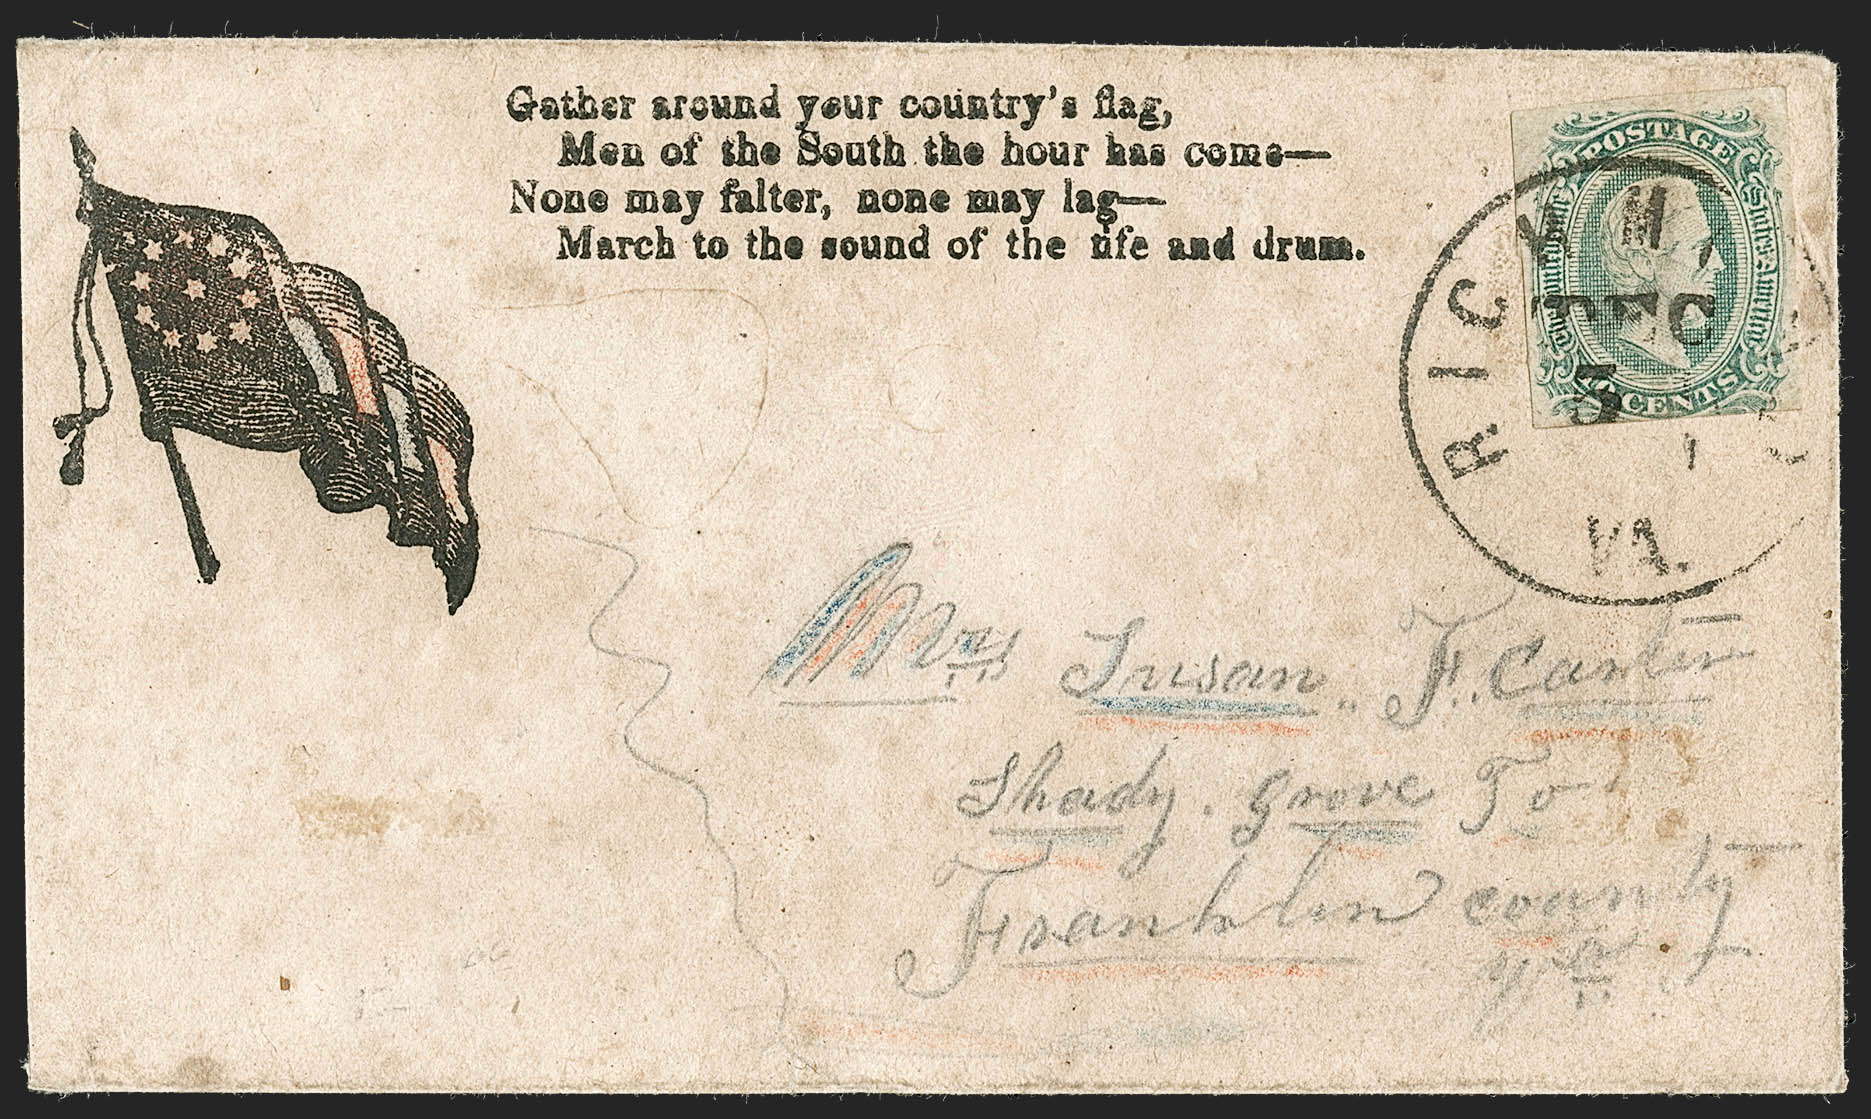 Gather around your country's flag,
Men of the South the hour has come—
None may falter, none may lag—
March to the sound of the fife and drum.
POSTAGE
The Confederate States of America
CENTS
RICH
DEC
5
VA.
Mrs Susan. F. Carter
Shady. Grove To
Franklin county
Va